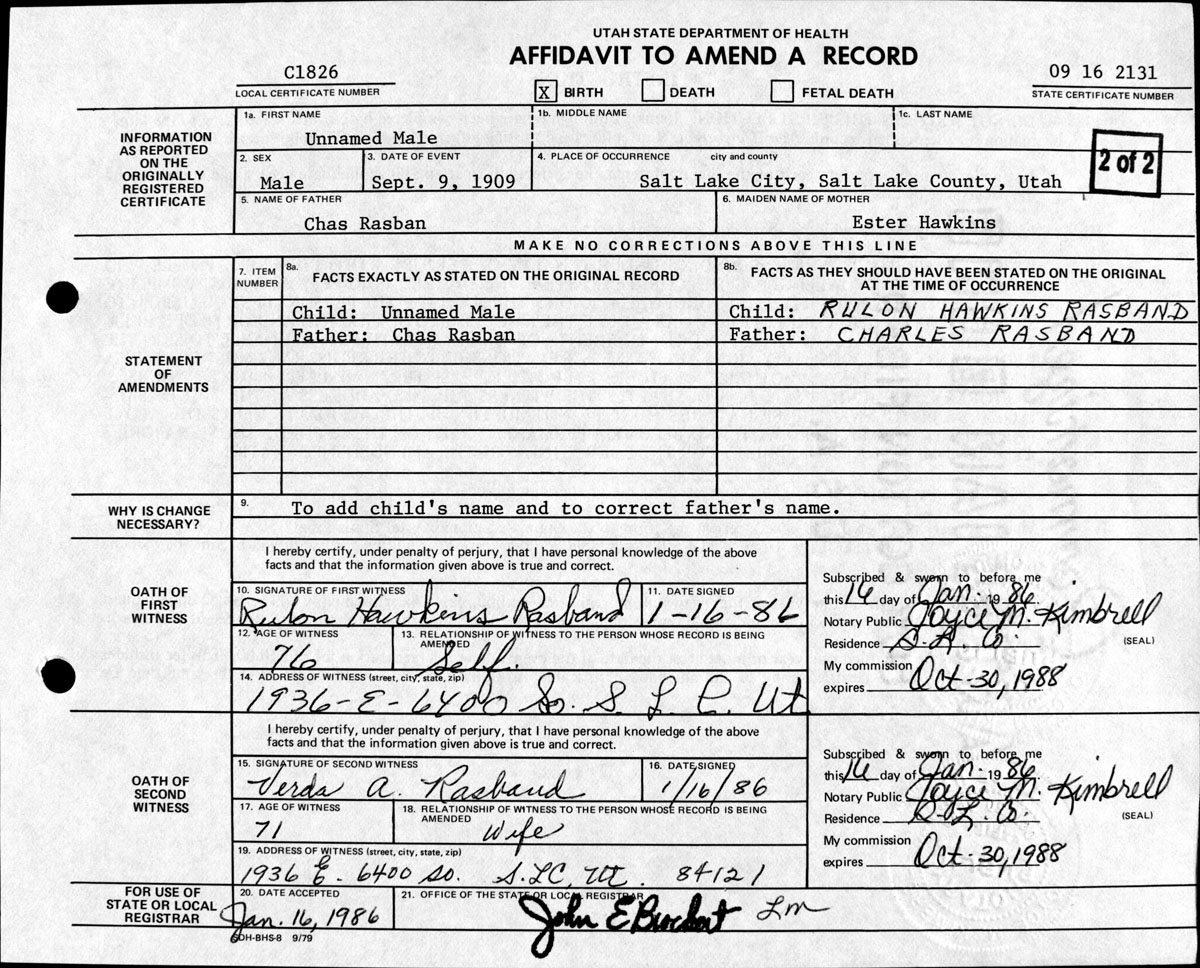 UTAH STATE DEPARTMENT OF HEALTH
AFFIDAVIT TO AMEND A RECORD
C1826
LOCAL CERTIFICATE NUMBER
X BIRTH DEATH FETAL DEATH
09 16 2131
STATE CERTIFICATE NUMBER
INFORMATION AS REPORTED ON THE ORIGINALLY REGISTERED CERTIFICATE
1a. FIRST NAME 1b. MIDDLE NAME 1c. LAST NAME
Unnamed Male
2 of 2
2. SEX 3. DATE OF EVENT 4. PLACE OF OCCURRENCE city and county
Male Sept. 9, 1909 Salt Lake City, Salt Lake County, Utah
5. NAME OF FATHER 6. MAIDEN NAME OF MOTHER
Chas Rasban Ester Hawkins
MAKE NO CORRECTIONS ABOVE THIS LINE
STATEMENT OF AMENDMENTS
7. ITEM NUMBER 8a. FACTS EXACTLY AS STATED ON THE ORIGINAL RECORD 8b. FACTS AS THEY SHOULD HAVE BEEN STATED ON THE ORIGINAL AT THE TIME OF OCCURRENCE
Child: Unnamed Male Child: RULON HAWKINS RASBAND
Father: Chas Rasban Father: CHARLES RASBAND
WHY IS CHANGE NECESSARY?
9. To add child's name and to correct father's name.
OATH OF FIRST WITNESS
I hereby certify, under penalty of perjury, that I have personal knowledge of the above
facts and that the information given above is true and correct.
10. SIGNATURE OF FIRST WITNESS 11. DATE SIGNED
Rulon Hawkins Rasband 1-16-86
12. AGE OF WITNESS 13. RELATIONSHIP OF WITNESS TO THE PERSON WHOSE RECORD IS BEING AMENDED
76 Self.
14. ADDRESS OF WITNESS (street, city, state, zip)
1936-E-6400 So. S. L. C. Ut
Subscribed & sworn to before me
this 16 day of Jan. 19 86.
Notary Public Joyce M. Kimbrell
Residence S. L. Co. (SEAL)
My commission
expires Oct-30, 1988
OATH OF SECOND WITNESS
I hereby certify, under penalty of perjury, that I have personal knowledge of the above
facts and that the information given above is true and correct.
15. SIGNATURE OF SECOND WITNESS 16. DATE SIGNED
Verda A. Rasband 1/16/86
17. AGE OF WITNESS 18. RELATIONSHIP OF WITNESS TO THE PERSON WHOSE RECORD IS BEING AMENDED
71 Wife
19. ADDRESS OF WITNESS (street, city, state, zip)
1936 E. 6400 So. S.LC, Ut. 84121
Subscribed & sworn to before me
this 16 day of Jan. 19 86.
Notary Public Joyce M. Kimbrell
Residence S. L. Co. (SEAL)
My commission
expires Oct-30, 1988
FOR USE OF STATE OR LOCAL REGISTRAR
20. DATE ACCEPTED 21. OFFICE OF THE STATE OR LOCAL REGISTRAR
Jan. 16, 1986 John E Brockert Lm
SDH-BHS-8 9/79